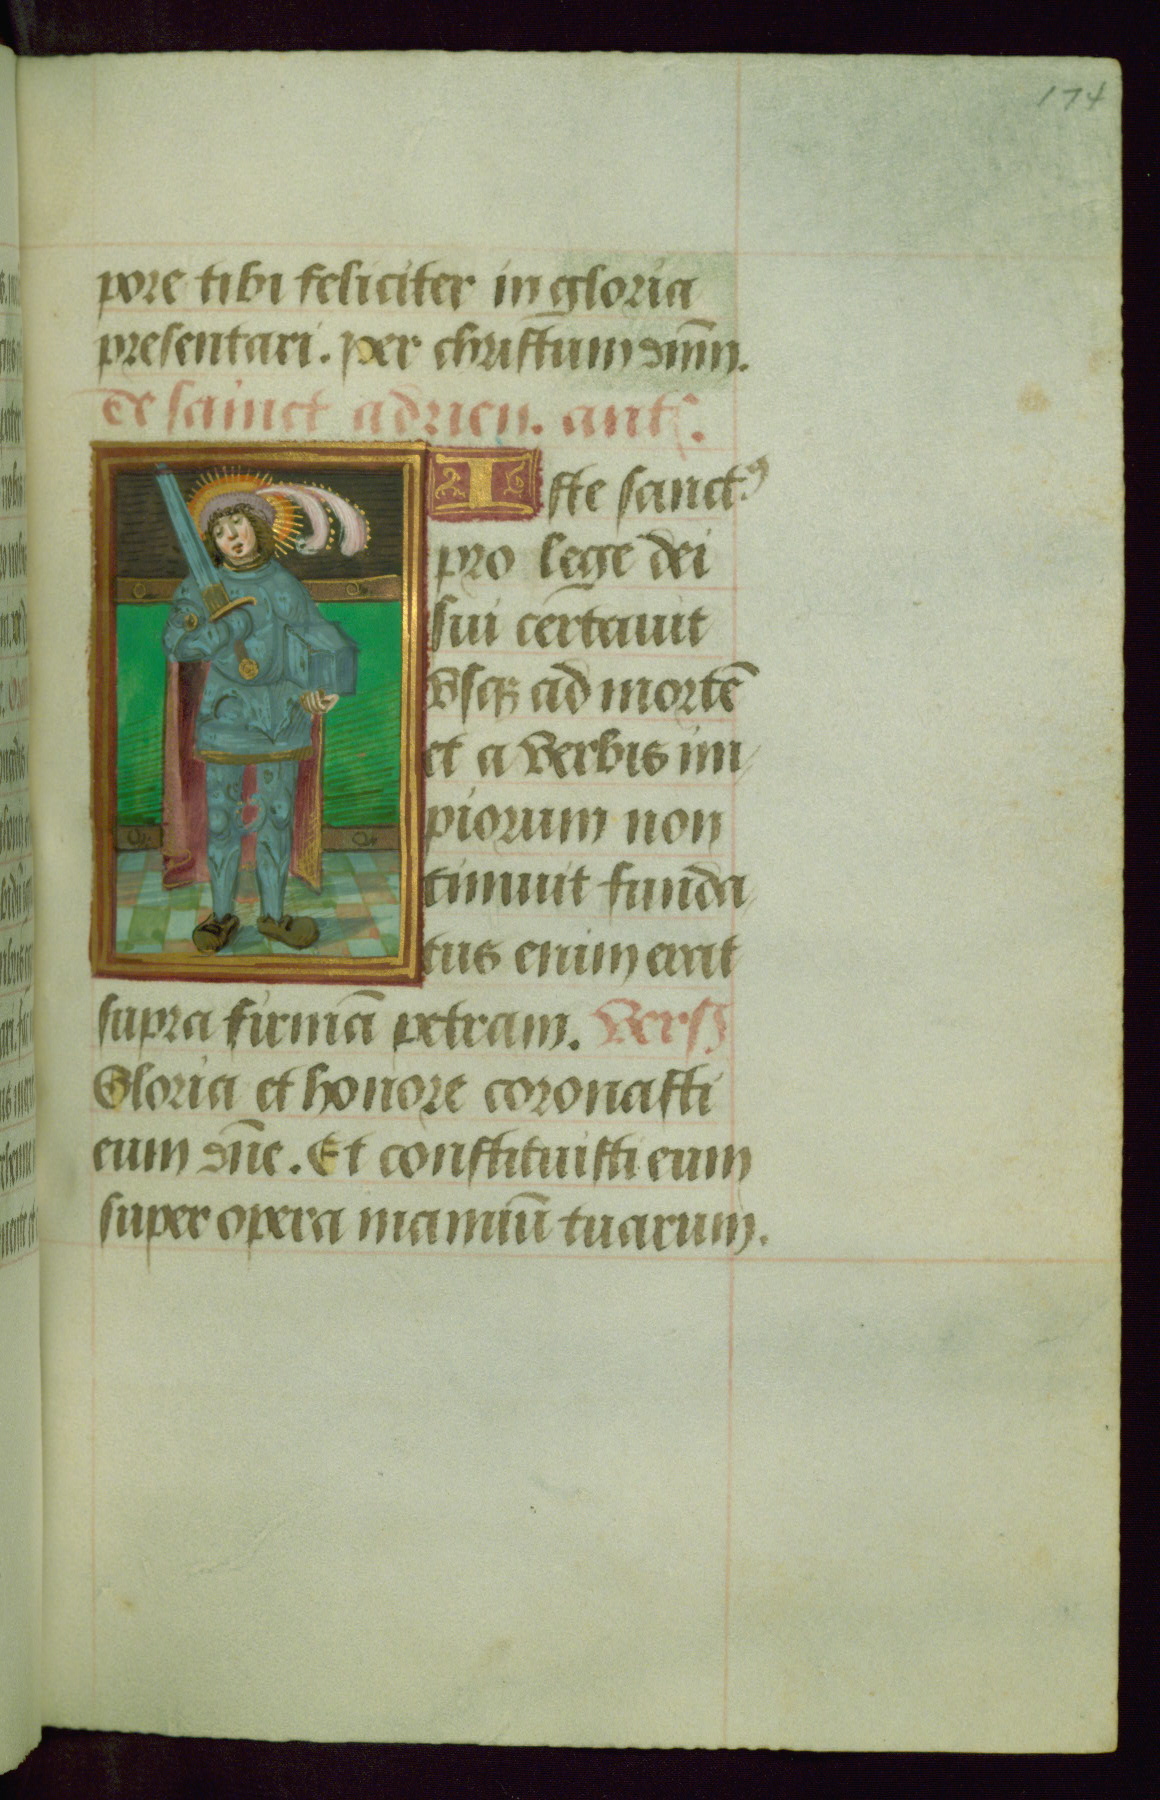 174
pore tibi feliciter in gloria
presentari. per christum dn̄m.
de sainct adrien. ant.
Iste sanctꝰ
pro lege dei
sui certauit
vsqꝫ ad mortē
et a verbis im
piorum non
timuit funda
tus enim erat
supra firmā petram. Vers
Gloria et honore coronasti
eum dn̄e. Et constituisti eum
super opera manuū tuarum.